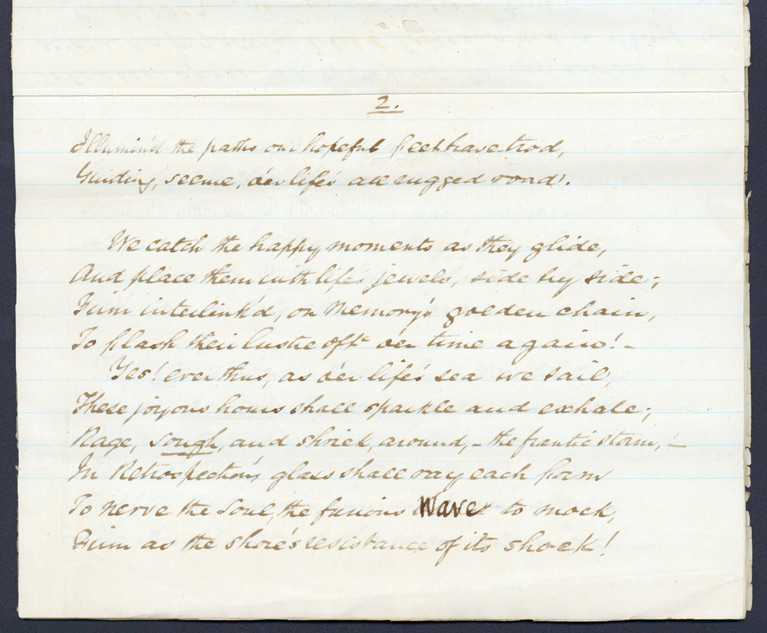 2.
Illumin'd the paths our hopeful feet have trod,
Guiding, secure, o'er life's all rugged road.
We catch the happy moments as they glide,
And place them with life's jewels, side by side;
Firm interlink'd, on Memory's golden chain,
To flash their lustre oft o'er time again! -
Yes! ever thus, as o'er life's sea we sail,
These joyous hours shall sparkle and exhale;
Rage, sough, and shriek, around, - the frantic storm, -
In Retrospection's glass shall ray each form
To nerve the Soul, the furious Wave to mock,
Firm as the shore's resistance of its shock!